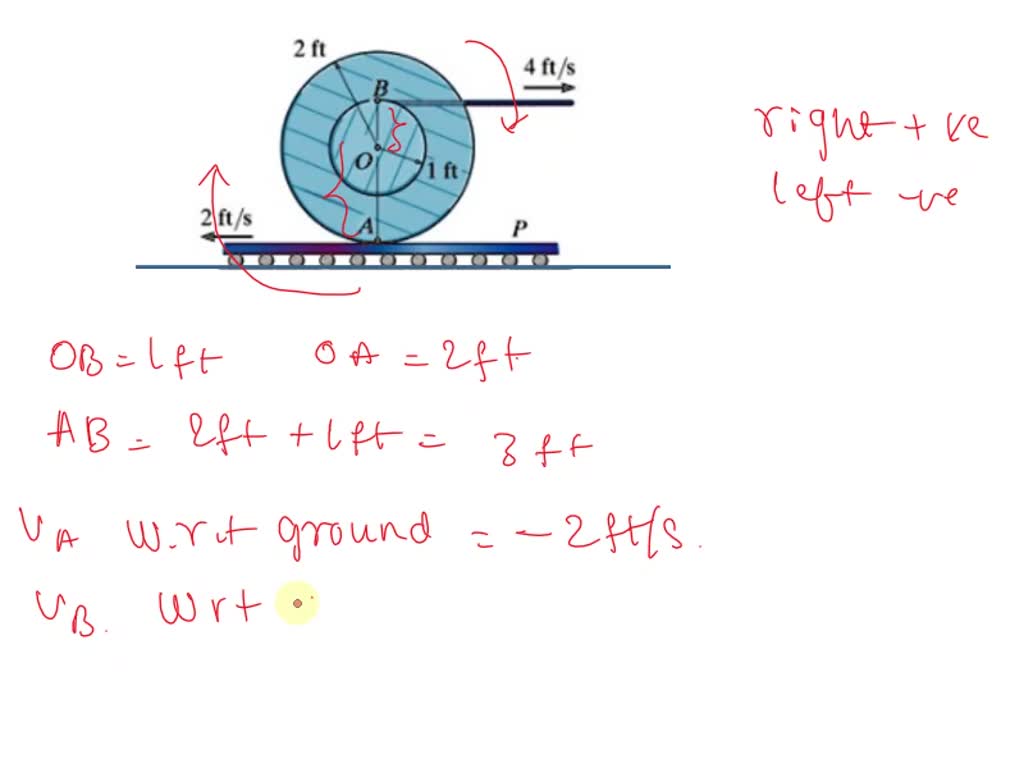 2 ft
4 ft/s
B
O
1 ft
2 ft/s
A
P
right + ve
left -ve
OB = 1ft OA = 2ft
AB = 2ft + 1ft = 3ft
VA w.r.t ground = -2ft/s.
VB. wrt